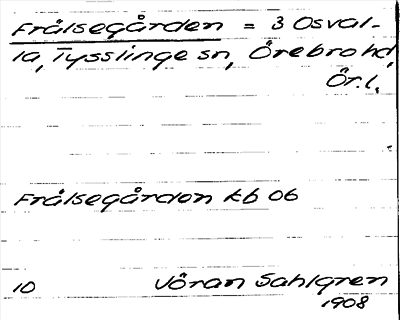 Frälsegården = 3 Osval-
la, Tysslinge sn, Örebro hd,
Ör. l.
Frälsegården kb 06
10 Göran Sahlgren
1908